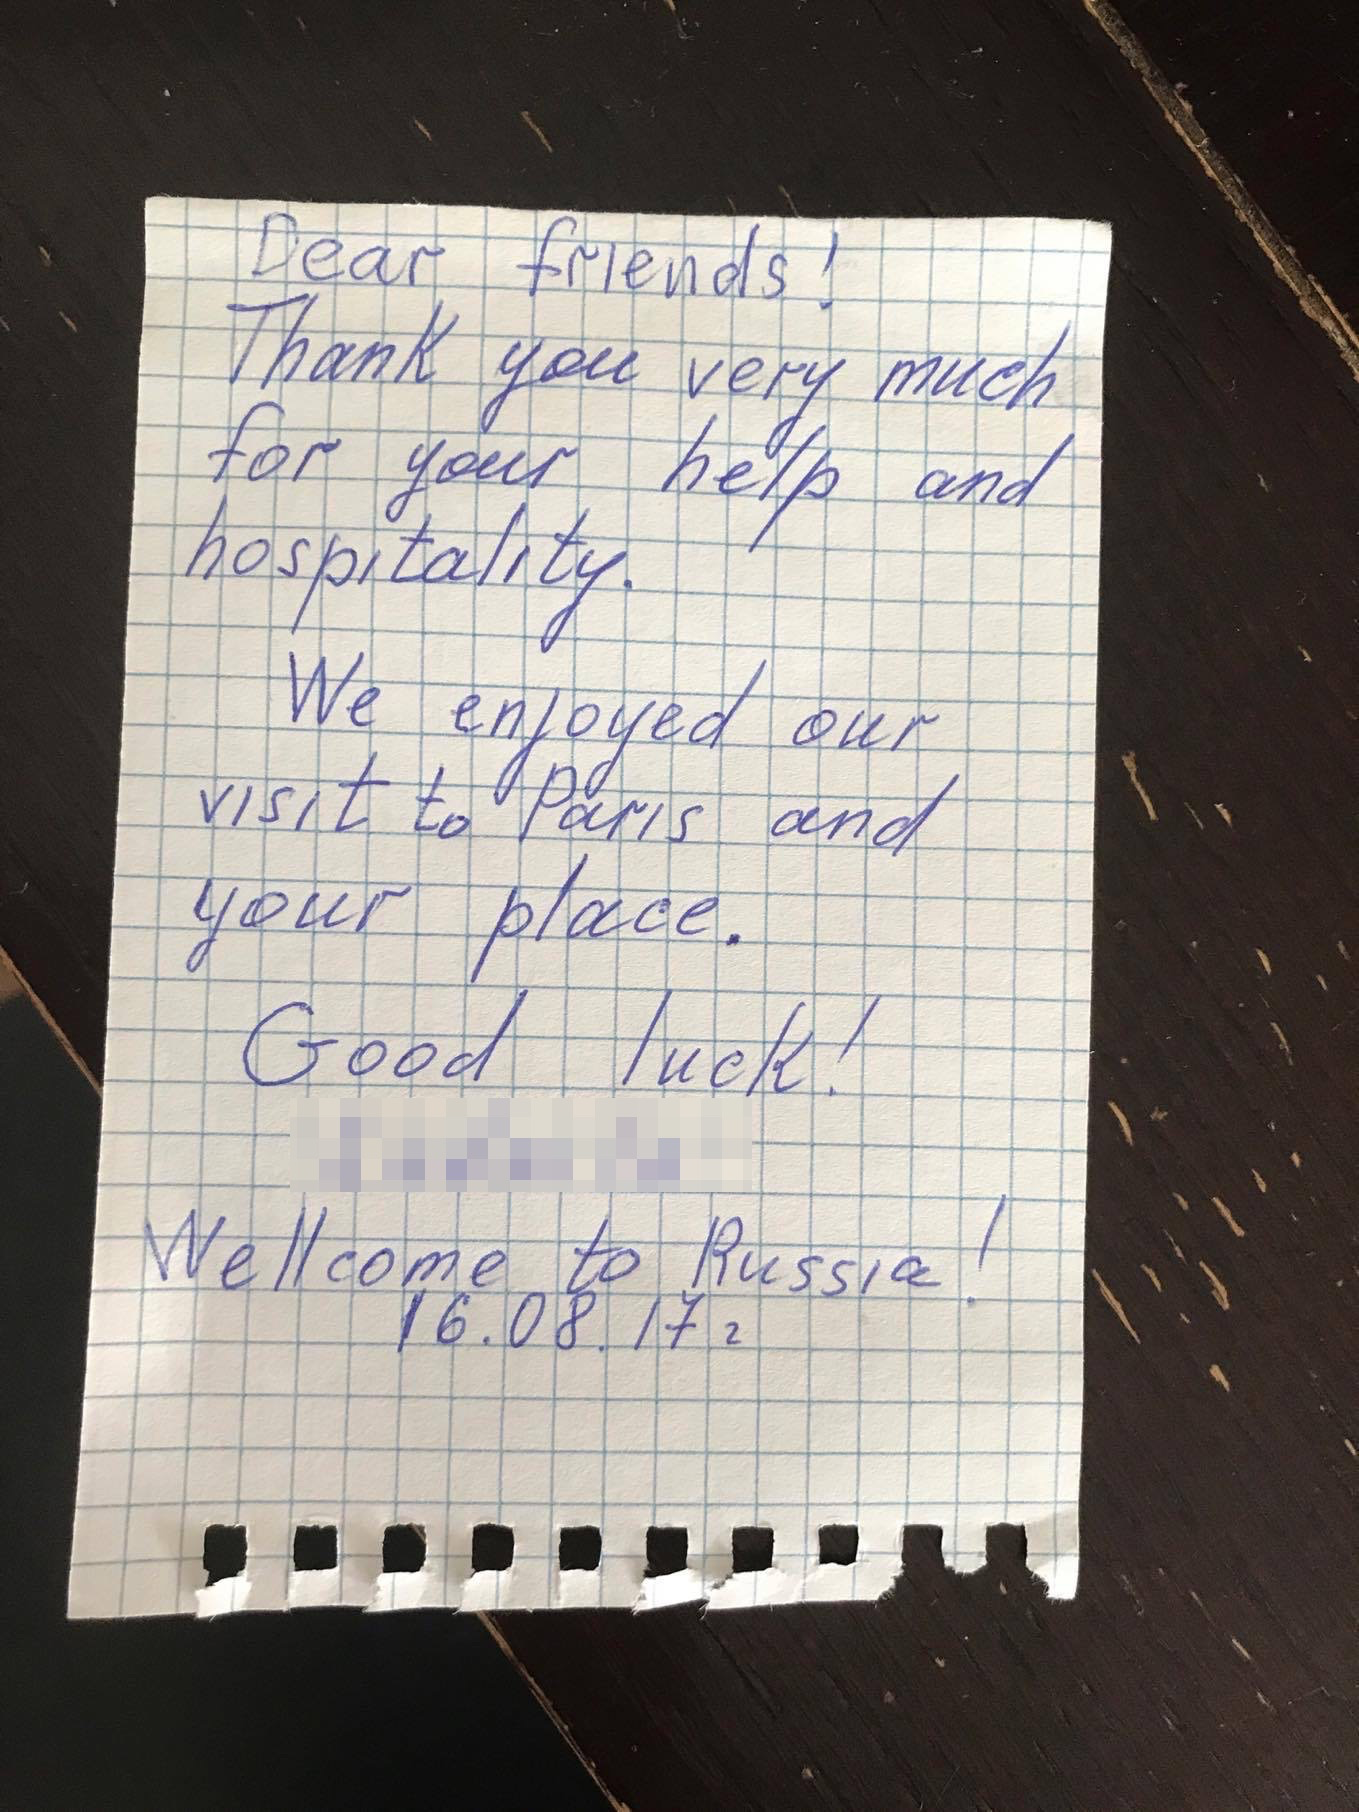 Dear friends!
Thank you very much
for your help and
hospitality.
We enjoyed our
visit to Paris and
your place.
Good luck!
Wellcome to Russia!
16.08.17г